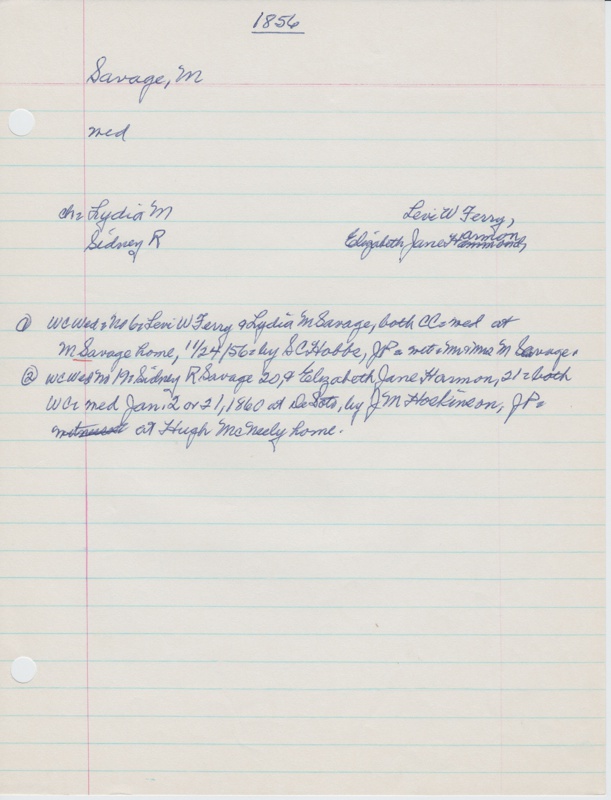 1856
Savage, M
wed
ch= Lydia M Levi W Ferry,
Sidney R Elizabeth Jane Harmon
① WC Wed= No 6= Levi W Ferry & Lydia M Savage, both CC= wed at
M Savage home, 11/24/56= by S C Hobbs, JP= wit= Mr & Mrs M Savage.
② WC Wed No 191= Sidney R Savage 20, & Elizabeth Jane Harmon, 21= both
WC= wed Jan. 2 or 21, 1860 at DeSoto, by J M Hoskinson, JP=
at Hugh McNeely home.